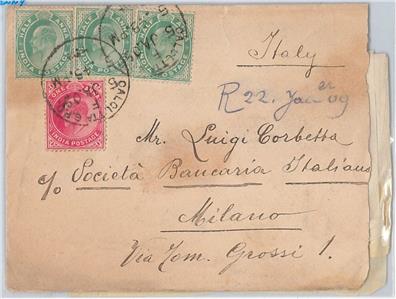 INDIA POSTAGE
HALF ANNA
INDIA POSTAGE
HALF ANNA
INDIA POSTAGE
HALF ANNA
CALCUTTA G.P.O.
ONE ANNA
INDIA POSTAGE
Italy
R 22. Jan er 09
Mr. Luigi Corbetta
c/o Società Bancaria Italiana
Milano
Via Tom. Grossi 1.